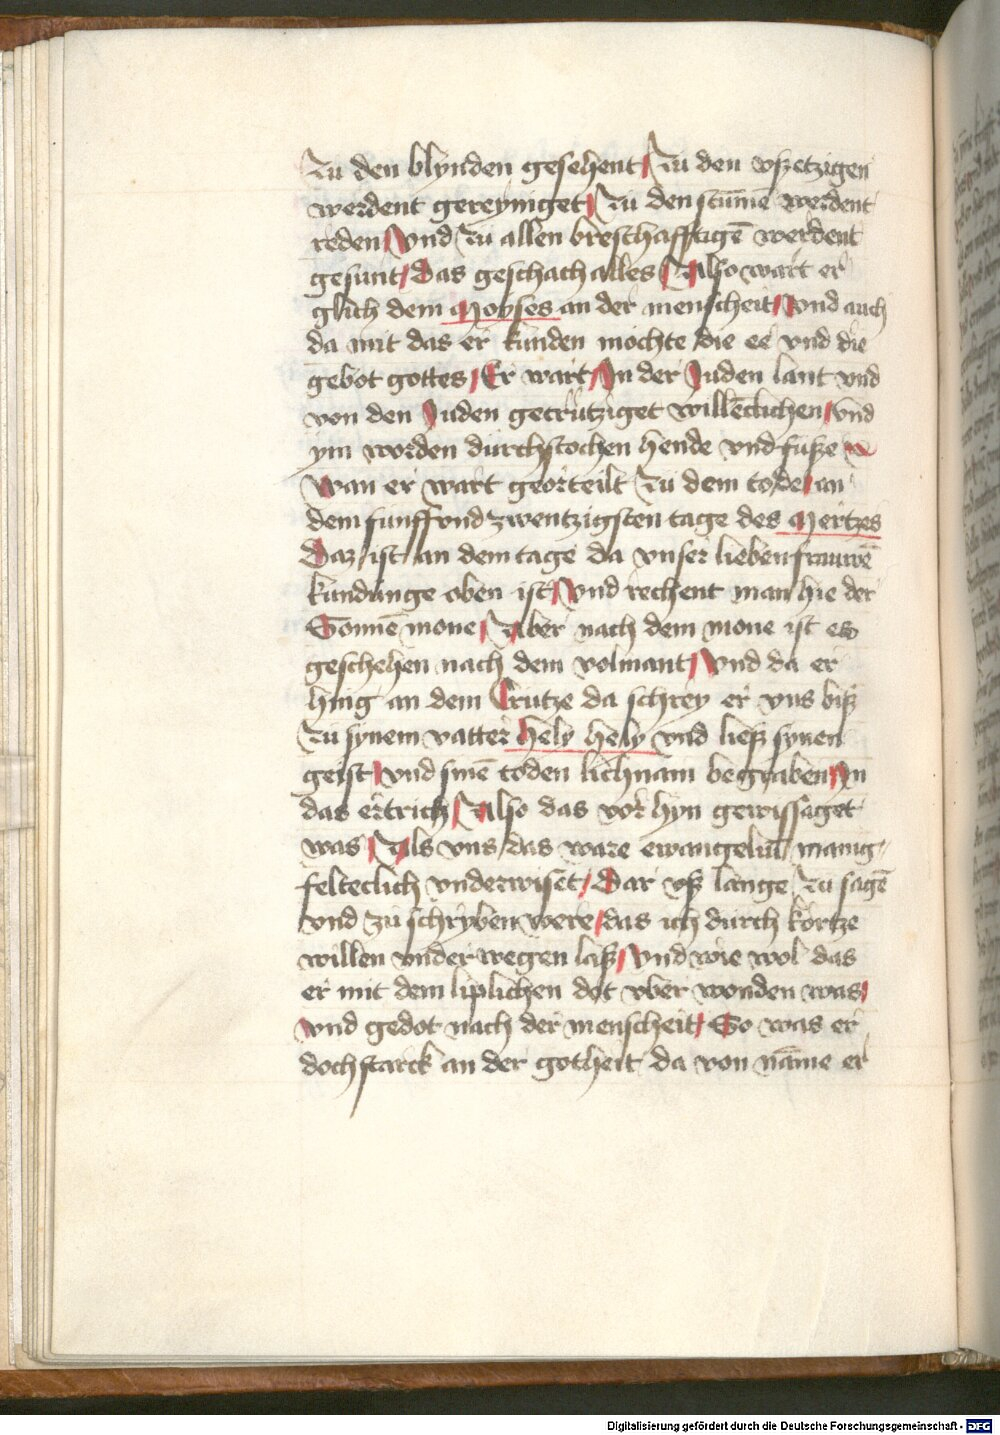 Zu den blynden gesehent / Zu den vszetzigen
werdent gereyniget / Zu den stūmē werdent
reden / Vnd Zu allen breschafftigē werdent
gesunt / Das geschach alles / Also wart er
glich dem Moyses an der menscheit / Vnd auch
da mit das er kunden mochte die ee vnd die
gebot gottes / Er wart / In der Juden lant vnd
von den Juden gecrutziget willēclichen / vnd
ym worden durchstochen hende vnd fusze
Wan er wart georteilt Zu dem tode / an
dem funff vnd zwentzigsten tage des Mertzes
Daz ist an dem tage da vnser lieben frauwē
kundunge oben ist / Vnd rechent man hie der
Sonnē mone / Aber nach dem mone ist es
geschehen nach dem volmant / Vnd da er
hing an dem Crutze da schrey er vns bisz
Zu synem vatter hely hely vnd liesz synen
geist / vnd sinē toden lichnam begraben / In
das ertrich / Also das vor hyn gewissaget
was / Als vns das ware ewangeliū manig
felteclich vnderwiset / Dar vsz lange Zu sagē
vnd zu schryben were / das ich durch kortze
willen vnder wegen lasz / Vnd wie wol das
er mit dem liplichen dot vber wonden was /
Vnd gedot nach der menscheit / So was er
doch starck an der gotheit da von nāme er
Digitalisierung gefördert durch die Deutsche Forschungsgemeinschaft - DFG